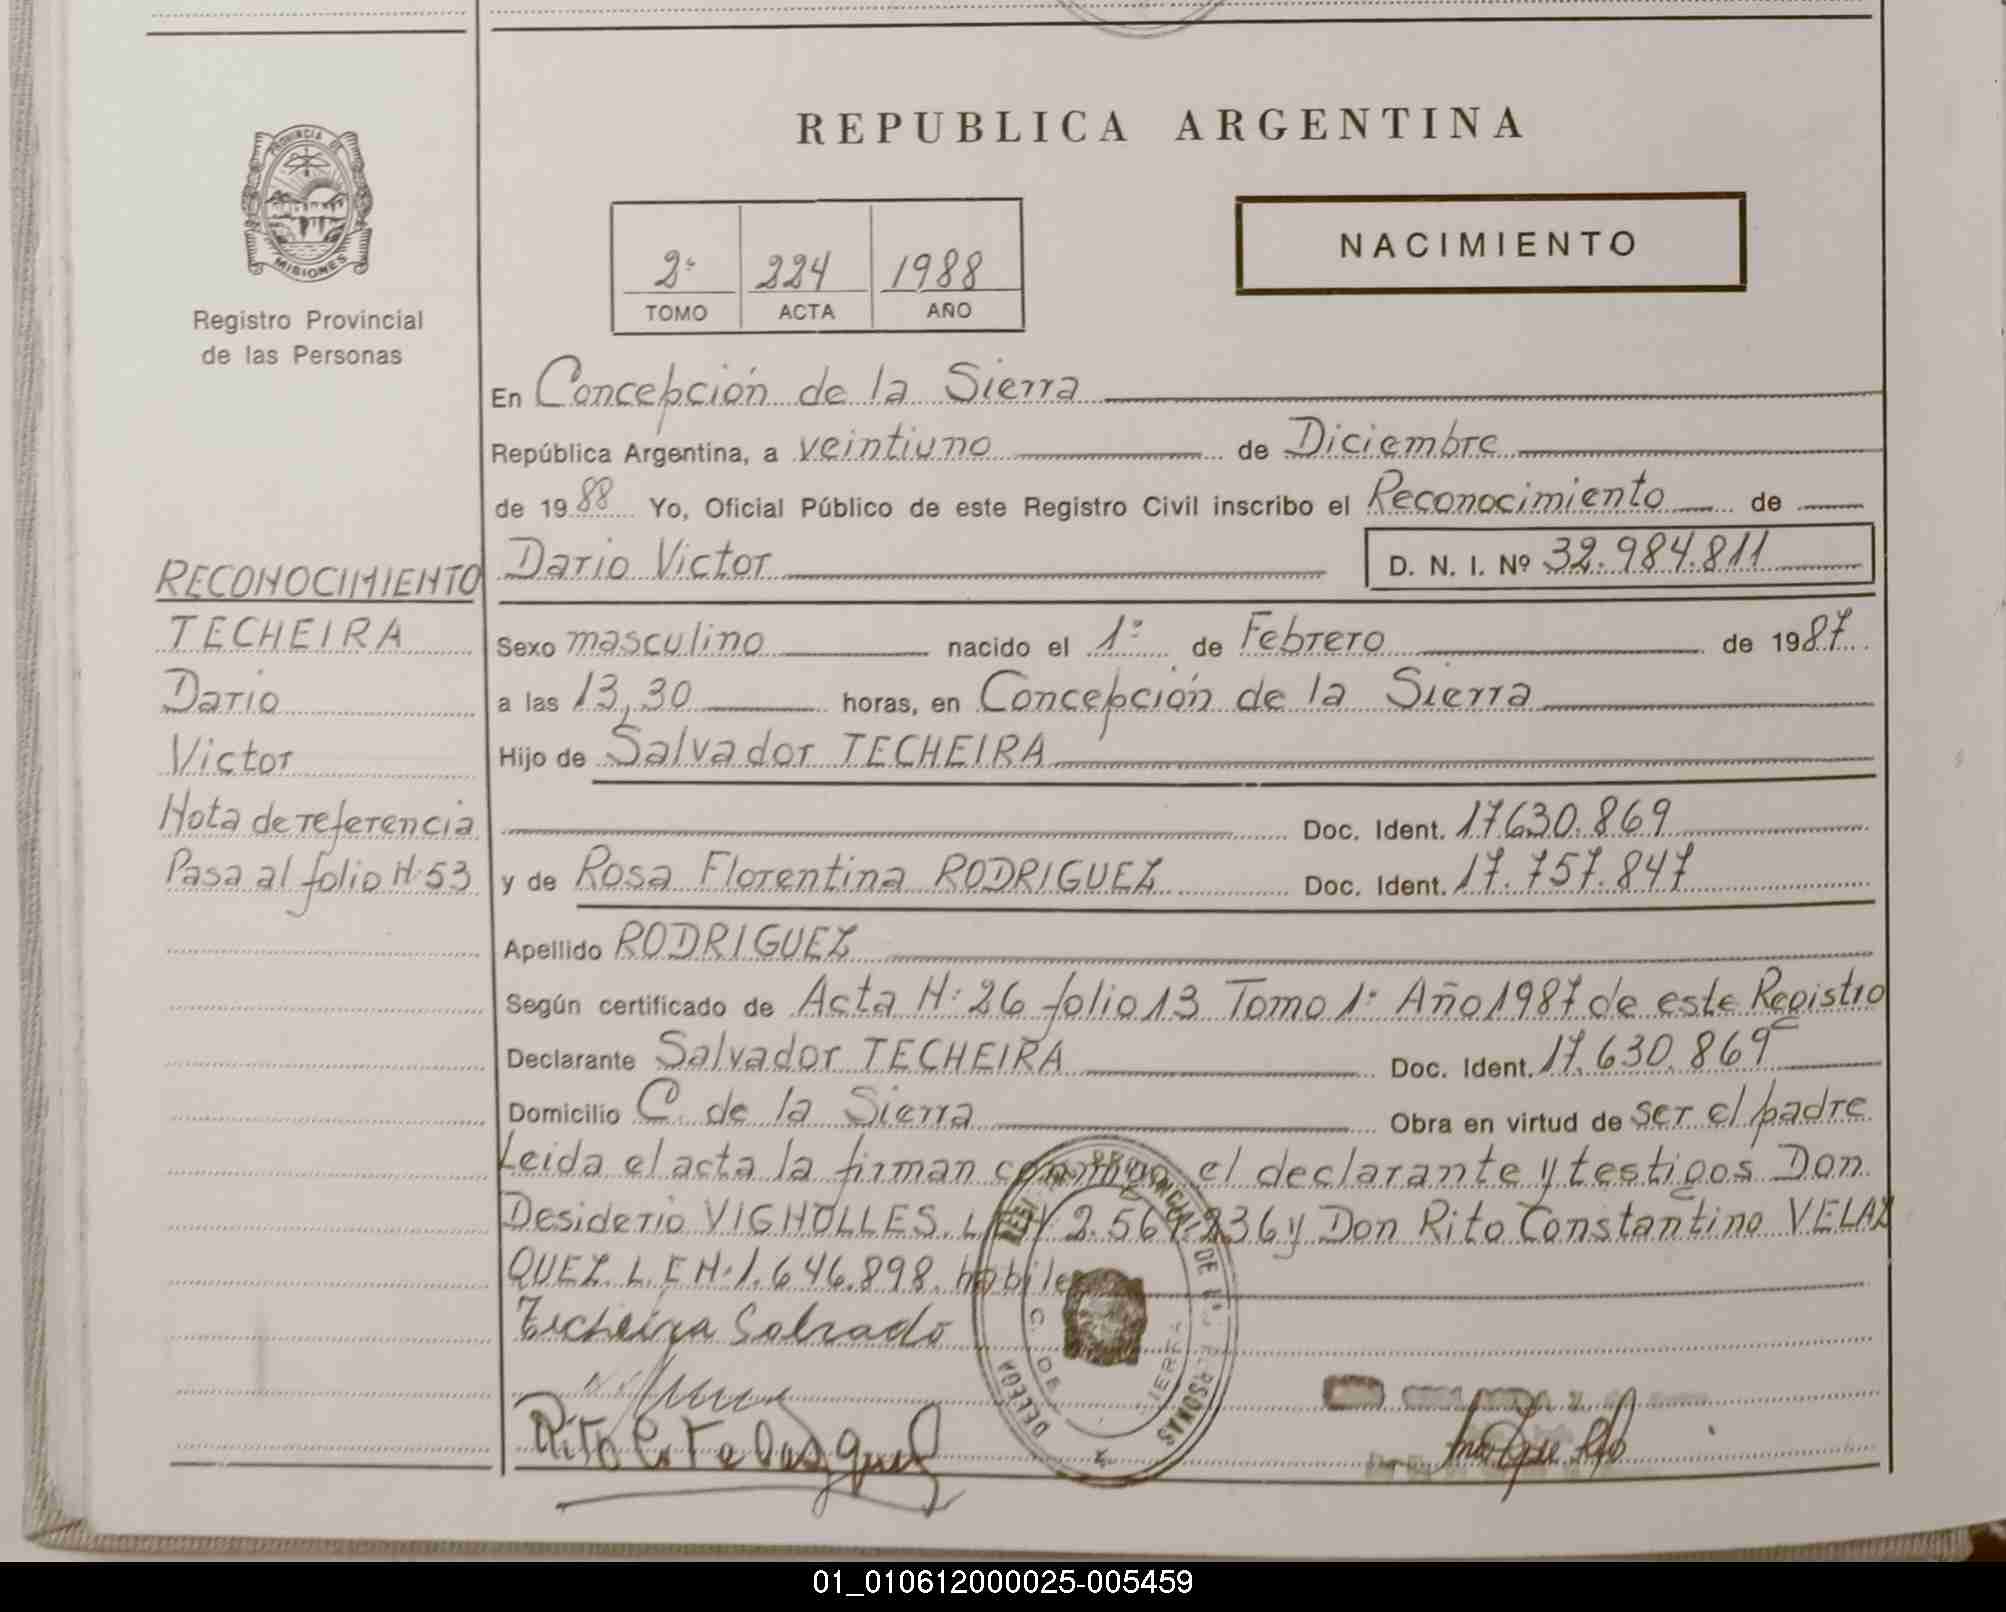 PROVINCIA DE
MISIONES
Registro Provincial
de las Personas
REPUBLICA ARGENTINA
2º 224 1988
TOMO ACTA AÑO
NACIMIENTO
En Concepción de la Sierra
República Argentina, a veintiuno de Diciembre
de 1988 Yo, Oficial Público de este Registro Civil inscribo el Reconocimiento de
Dario Victor D. N. I. Nº 32.984.811
Sexo masculino nacido el 1º de Febrero de 1987
a las 13,30 horas, en Concepción de la Sierra
Hijo de Salvador TECHEIRA
Doc. Ident. 17630.869
y de Rosa Florentina RODRIGUEZ Doc. Ident. 17.757.847
Apellido RODRIGUEZ
Según certificado de Acta N: 26 folio 13 Tomo 1º Año 1987 de este Registro
Declarante Salvador TECHEIRA Doc. Ident. 17.630.869
Domicilio C. de la Sierra Obra en virtud de ser el padre
Leida el acta la firman conmigo el declarante y testigos Don
Desiderio VIGNOLLES. 2.567.236 y Don Rito Constantino VELAZ
QUEZ L.E N. 1.646.898. habiles
Techeira Salvador
RECONOCIMIENTO
TECHEIRA
Dario
Victor
Nota de referencia
Pasa al folio N: 53
01_010612000025-005459